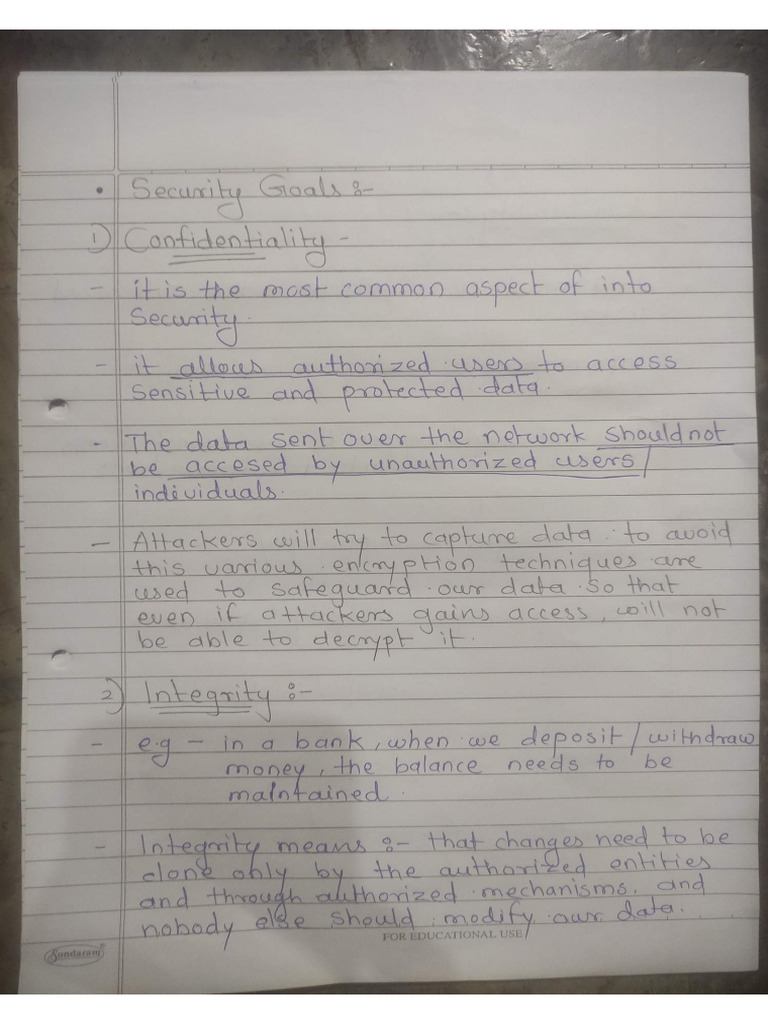 • Security Goals :-
1) Confidentiality -
- it is the most common aspect of into
Security.
- it allows authorized users to access
Sensitive and protected data.
- The data sent over the network should not
be accesed by unauthorized users/
individuals.
- Attackers will try to capture data. to avoid
this various encryption techniques are
used to safeguard our data so that
even if attackers gains access, will not
be able to decrypt it.
2) Integrity :-
- e.g - in a bank, when we deposit / withdraw
money, the balance needs to be
maintained.
- Integrity means :- that changes need to be
done only by the authorized entities
and through authorized mechanisms. and
nobody else should modify our data.
FOR EDUCATIONAL USE
Sundaram